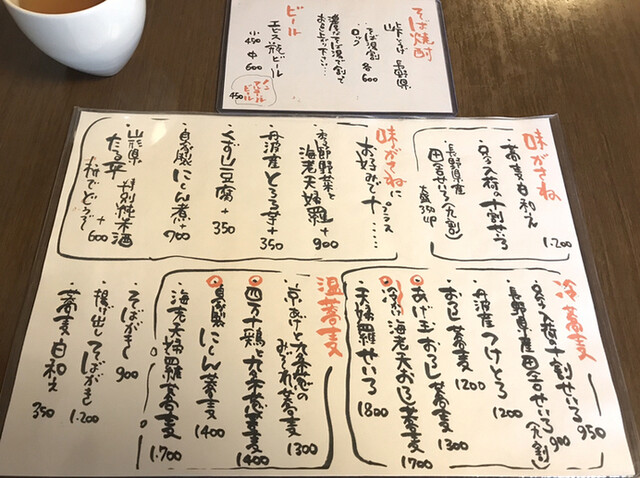 そば焼酎
峠 長野県
そば湯割
ロック 各600
濃厚なそば湯で割って
お召し上がり下さい……
ビール
エビス瓶ビール
小450 中600
ノンアルコールビール
450
味がさね
蕎麦白和え
各入荷の十割せいろ
1.200
長野県産
田舎せいろ(九割)
大盛350up
味がさねに
お好みで+プラス……
京都野菜と
海老天婦羅+900
丹波産とろろ芋+350
くずし豆腐+350
自家製にしん煮+700
山形県 特別純米酒
たる平 一杯でどうぞ +600
冷蕎麦
各入荷の十割せいろ 950
長野県産田舎せいろ(九割) 900
丹波産つけとろ 1200
おろし蕎麦 1200
あげ玉おろし蕎麦 1300
冷たい海老天おろし蕎麦 1700
天婦羅せいろ 1800
温蕎麦
京あげと九条葱の
みぞれ蕎麦 1300
四万十鶏と九条葱蕎麦 1400
自家製にしん蕎麦 1400
海老天婦羅蕎麦 1.700
そばがき 900
揚げ出しそばがき 1.200
蕎麦白和え 350